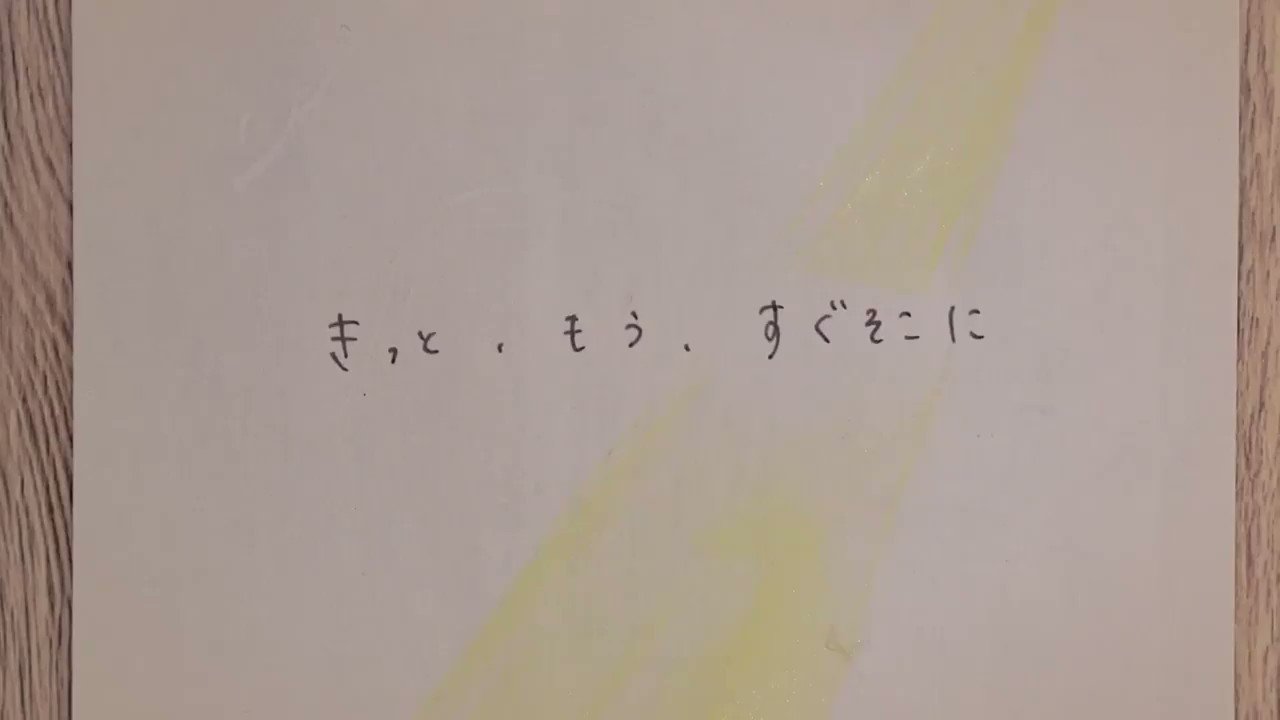 きっと、もう、すぐそこに